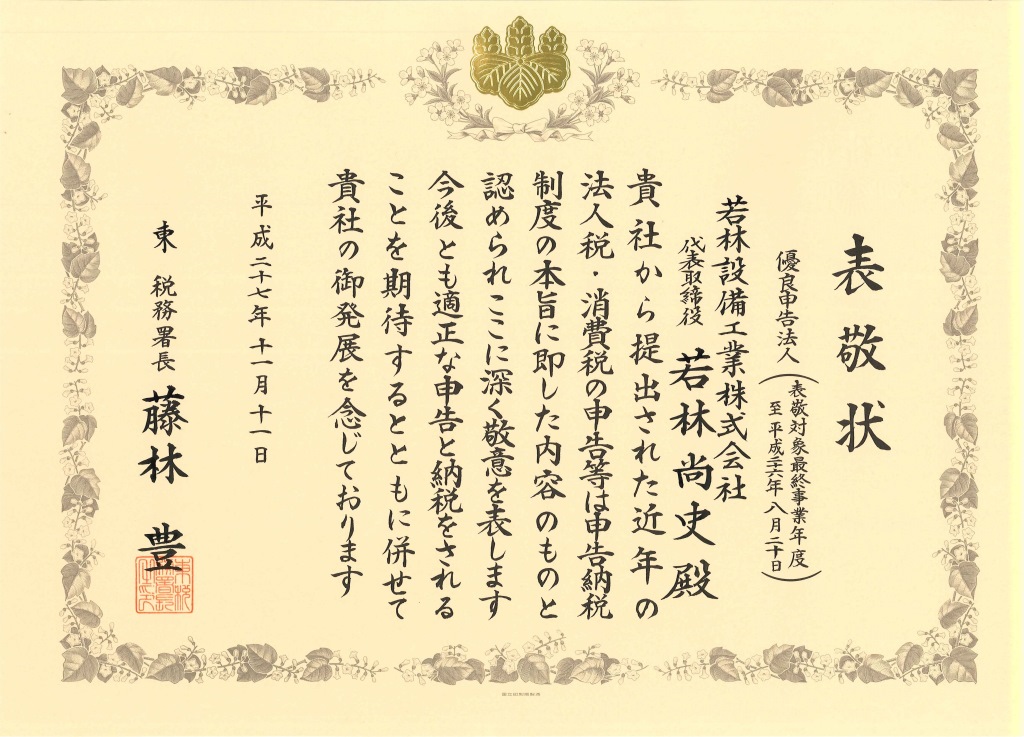 表敬状
優良申告法人
表敬対象最終事業年度
至平成二十六年八月二十日
若林設備工業株式会社
代表取締役 若林尚史殿
貴社から提出された近年の
法人税・消費税の申告等は申告納税
制度の本旨に即した内容のものと
認められここに深く敬意を表します
今後とも適正な申告と納税をされる
ことを期待するとともに併せて
貴社の御発展を念じております
平成二十七年十一月十一日
東 税務署長 藤林 豊